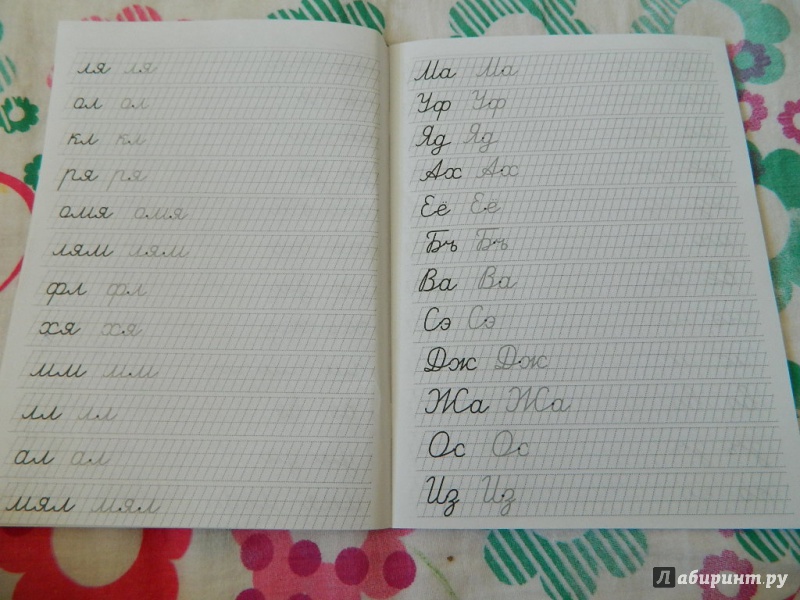 ля ля
ол ол
кл кл
ря ря
омя омя
лям лям
фл фл
хя хя
мм мм
лл лл
ал ал
мял мял
Ма Ма
Уф Уф
Яд Яд
Ах Ах
Её Её
Бъ Бъ
Ва Ва
Сэ Сэ
Дж Дж
Жа Жа
Ос Ос
Из Из
Лабиринт.ру